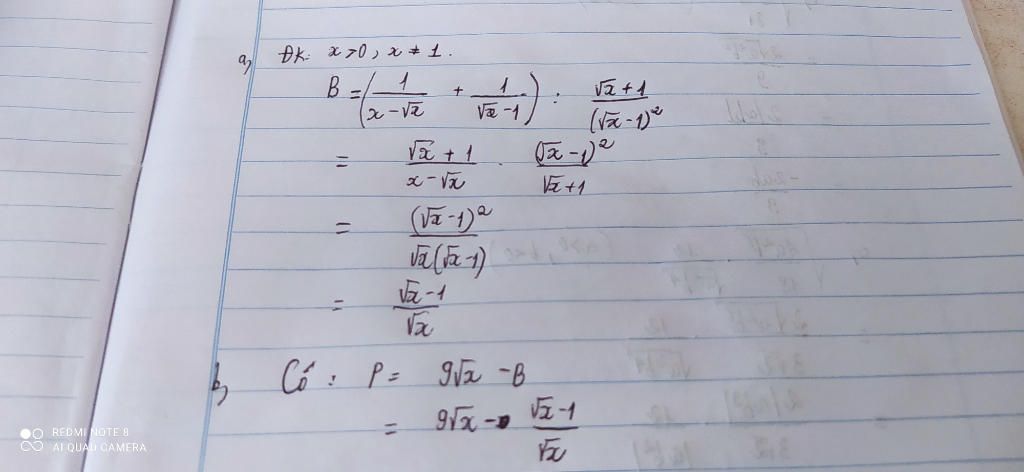 a, ĐK: x > 0, x ≠ 1.
B = (1/(x - √x) + 1/(√x - 1)) : (√x + 1)/(√x - 1)²
= (√x + 1)/(x - √x) . (√x - 1)²/(√x + 1)
= (√x - 1)²/(√x(√x - 1))
= (√x - 1)/√x
b, Có : P = 9√x - B
= 9√x - (√x - 1)/√x
REDMI NOTE 8
AI QUAD CAMERA